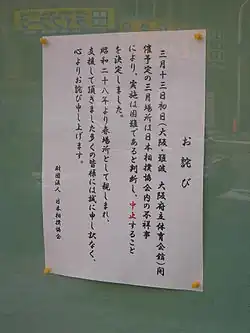 お詫び
三月十三日初日(大阪・難波 大阪府立体育会館)開
催予定の三月場所は日本相撲協会内の不祥事
により、実施は困難であると判断し、中止すること
を決定しました。
昭和二十八年より春場所として親しまれ、
支援して頂きました多くの皆様には誠に申し訳なく、
心よりお詫び申し上げます。
財団法人 日本相撲協会